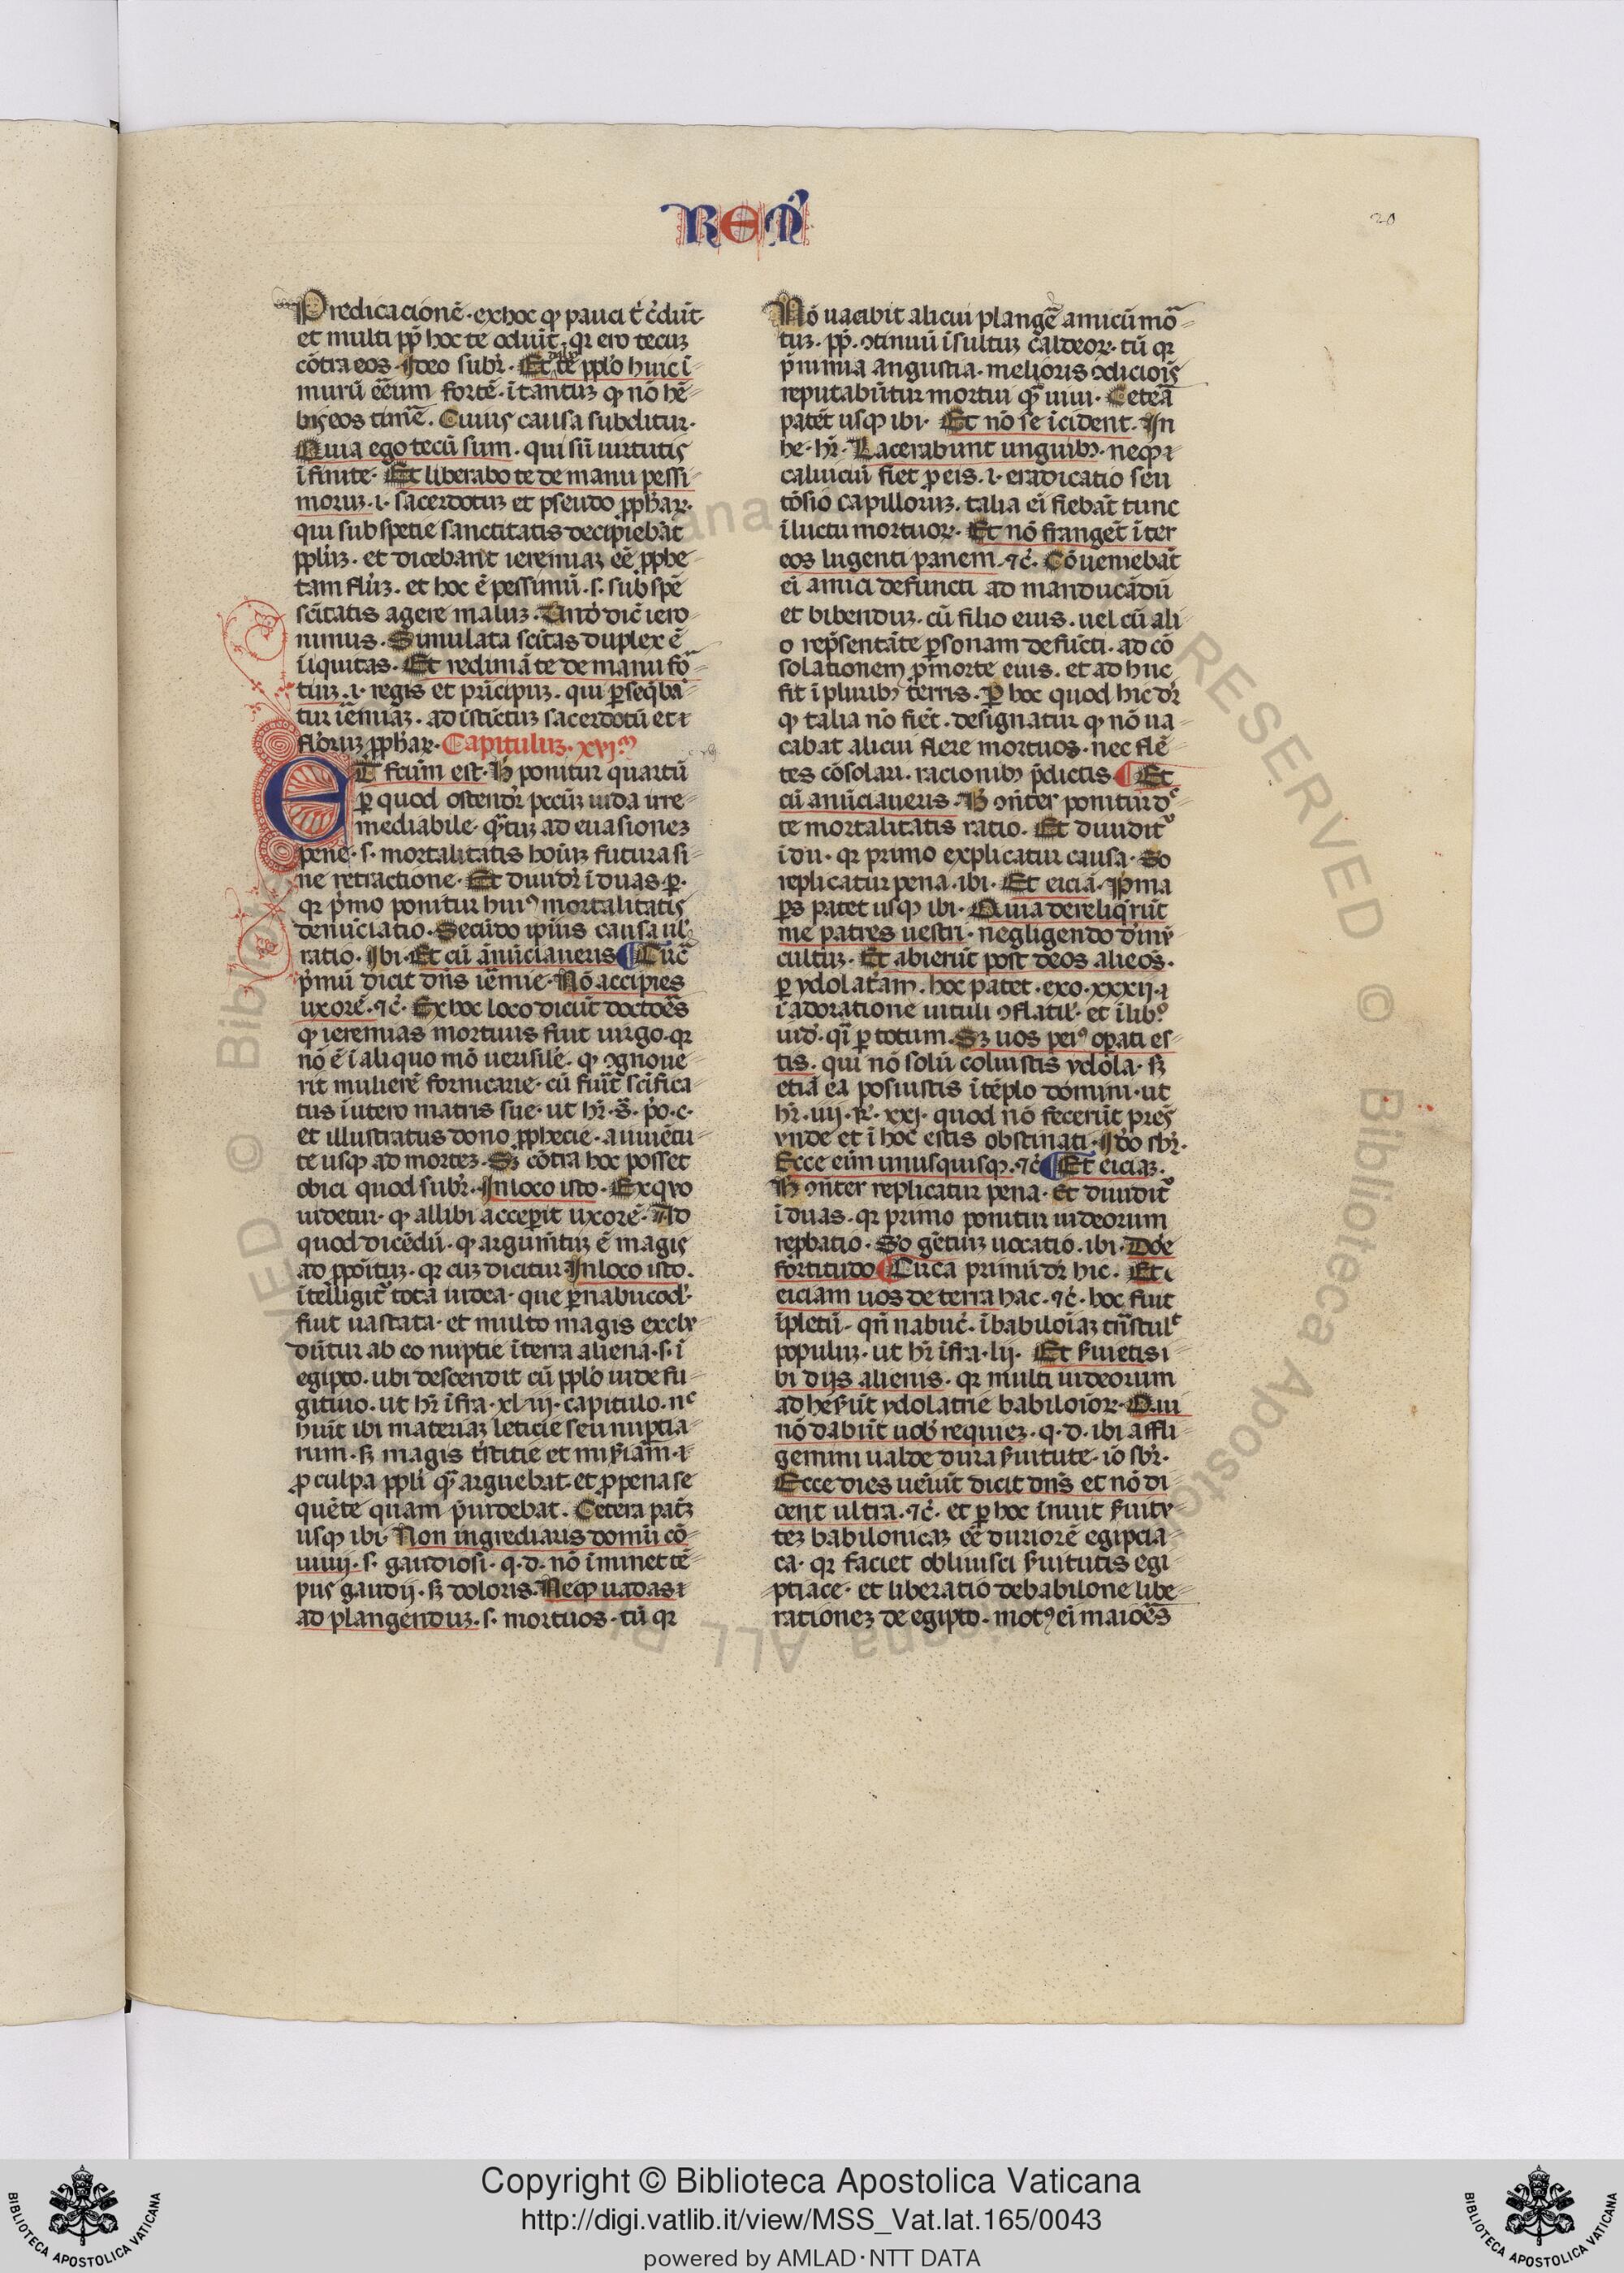 REM᾽
20
Predicacionē · ex hoc qꝫ pauci t̄ c̄dūt
et multi ꝓp̄ hoc te oduīt, qr ero tecuꝫ
cōtra eos · Ideo subr̄ · Et te pplo huic ī
murū ēeum fortē · ī tantuꝫ qꝫ nō hē-
bis eos timē̄ · Cuius causa subditur ·
Quia ego tecū sum · qui sū uirtutis
īfinite · Et liberabo te de manu pessi-
moruꝫ · i · sacerdotuꝫ et pseudo ꝓphar̄ ·
qui sub spetie sanctitatis decipiebāt
pplūꝫ · et dicebant ieremiaꝫ eē ꝓphe-
tam flūꝫ · et hoc ē pessimū · s · sub spē
scītatis agere maluꝫ · Unde dic̄ iero-
nimus · Simulata scītas duplex ē
īiquitas · Et redimā te de manu fō-
tiuꝫ · i · regis et prīcipuꝫ · qui ꝑseq̄bā-
tur iēmiaꝫ · ad īstīctuꝫ sacerdotū et
floruꝫ ꝓphar̄ · Capituluꝫ · xvj ·m
ET fcūm est · H̄ ponitur quartū
ꝑ quod ostendr̄ pccūꝫ iuda irre-
mediabile · q̄tuꝫ ad euasioneꝫ
pene · s · mortalitatis hoīūꝫ futura si-
ne retractione · Et diuidr̄ ī duas ꝑ ·
qr p̄mo ponitur hui᾽ mortalitatis
denūciatio · Secūdo ipius causa ul̄
ratio · Ibi · Et cū ānūciaueris ¶ Circ̄
p̄mū dicit dn̄s iēmie · Nō accipies
uxorē · ⁊c̄ · Ex hoc loco dicūt doctoēs
qꝫ ieremias mortuus fuit uirgo · qr
nō ē ī aliquo mō uerisile · qꝫ ↄgnoue-
rit mulierē fornicarie · cū fuit̄ scīfica-
tus ī utero matris sue · ut hr̄ · s̄ · p̄o · c ·
et illustratus dono ꝓphecie · a iuuētu-
te usqꝫ ad morteꝫ · Sꝫ cōtra hoc posset
obici quod subr̄ · In loco isto · Ex quo
uidetur · qꝫ allibi acceperit uxorē · Ad
quod dicēdū · qꝫ argumtuꝫ ē magis
ad ꝓpoītuꝫ · qr cuꝫ dicitur In loco isto ·
ītelligit᾽ tota iudea · que ꝑ nabucod᾽ ·
fuit uastata · et multo magis exclu-
dūtur ab eo nuptie ī terra aliena · s · ī
egipto · ubi descendit cū pplo iude fu-
gitiuo · ut hr̄ īfra · xl iij · capitulo · nc
huit ibi materiaꝫ leticie seu nuptia-
rum · sꝫ magis tristitie et miseriam · i
ꝓ culpa ppli q̄ arguebat · et ꝓ pena se
quēte quam p̄uidebat · Cetera patꝫ
usqꝫ ibi · Non ingrediaris domū cō-
uiuij · s · gaudiosi · q · d · nō īminet tē-
pus gaudij · sꝫ doloris · Neqꝫ uadas
ad plangenduꝫ · s · mortuos · tū qr
Nō uacabit alicui plangē amicū mō-
tuꝫ · ꝓp̄ · ↄtinuū īsultuꝫ caldeoꝝ · tū qr
p̄ nimia angustia · melioris ↄdicioīs
reputabūtur mortui q̄ uiui · Ceteā
patēt usqꝫ ibi · Et nō se īcident · In
he · hr̄ · Lacerabunt unguibꝫ · neqꝫ
caluiciū fiet ꝓ eis · i · eradicatio seu
tōsio capilloruꝫ · talia ei fiebāt tunc
ī luctu mortuoꝝ · Et nō franget īter
eos lugenti panem · ⁊c̄ · Cōueniebāt
ei amici defuncti ad manducādū
et bibenduꝫ · cū filio eius · uel cū ali
o rep̄sentāte ꝑsonam defūcti · ad cō
solationem ꝓ morte eius · et ad huc
fit ī pluribꝫ terris · Per hoc quod hic dr̄
qꝫ talia nō fiēt · designatur qꝫ nō ua-
cabat alicui flere mortuos · nec flē-
tes cōsolari · racionibꝫ p̄dictis ¶ Et
cū anūciaueris · H̄ ↄn̄ter ponitur dc̄-
te mortalitatis ratio · Et diuidit᾽
ī du · qr primo explicatur causa · So
replicatur pena · ibi · Et eiciā · Ip̄ma
ꝑs patet usqꝫ ibi · Quia dereliq̄rūt
me patres uestri · negligendo diuinū
cultuꝫ · Et abierūt post deos alieos ·
ꝑ ydolatām · hoc patet · exo · xxxij ·
ī adoratione uituli ↄflatil᾽ · et ī lib᾽
iud᾽ · qī ꝑ totum · Sꝫ uos pei᾽ opati es-
tis · qui nō solū coluistis ydola · sꝫ
etiā ea posuistis ī tēplo domini · ut
hr̄ · iiij · R̄ · xxj · quod nō fecerūt pr̄es
vnde et ī hoc estis obstinati · Ido sbr̄ ·
Ecce eim unusquisqꝫ · ⁊c̄ ¶ Et eiciaꝫ ·
H̄ ↄn̄ter replicatur pena · Et diuidit᾽
ī duas · qr primo ponitur iudeorum
reꝓbatio · So gētiuꝫ uocatio · ibi · Dōe
fortitudo ¶ Circa primū dr̄ hic · Et
eiciam uos de terra hac · ⁊c̄ · hoc fuit
īpletū · qn̄ nabuc̄ · ī babiloīaꝫ tn̄stulᵗ
populuꝫ · ut hr̄ īfra · lij · Et s̄uietis i
bi diis alienis · qr multi iudeorum
adhes̄ūt ydolatrie babiloioꝝ · Qui
nō dabūt uob᾽ requieꝫ · q · d · ibi affli
gemini ualde dura s̄uitute · iō sbr̄ ·
Ecce dies ueīūt dicit dn̄s et nō di
cent ultra · ⁊c̄ · et ꝑ hoc īnuit s̄uitu-
teꝫ babilonicaꝫ eē duriorē egipcia-
ca · qr faciet obliuisci s̄uitutis egi-
ptiace · et liberatio de babilone libe-
rationeꝫ de egipto · mot᾽ ei maioēs
Copyright © Biblioteca Apostolica Vaticana
http://digi.vatlib.it/view/MSS_Vat.lat.165/0043
powered by AMLAD·NTT DATA
BIBLIOTECA APOSTOLICA VATICANA
BIBLIOTECA APOSTOLICA VATICANA